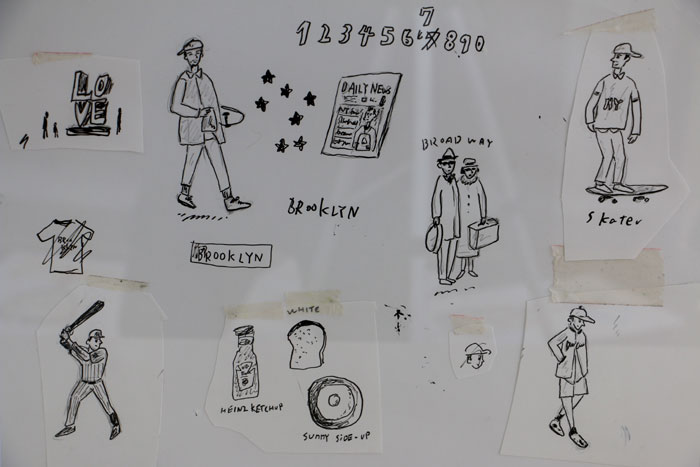 7
1 2 3 4 5 6 7 8 9 0
LO
VE
DAILY NEWS
NY
BROADWAY
BROOKLYN
Skater
BROOKLYN
WHITE
HEINZ KETCHUP
SUNNY SIDE-UP